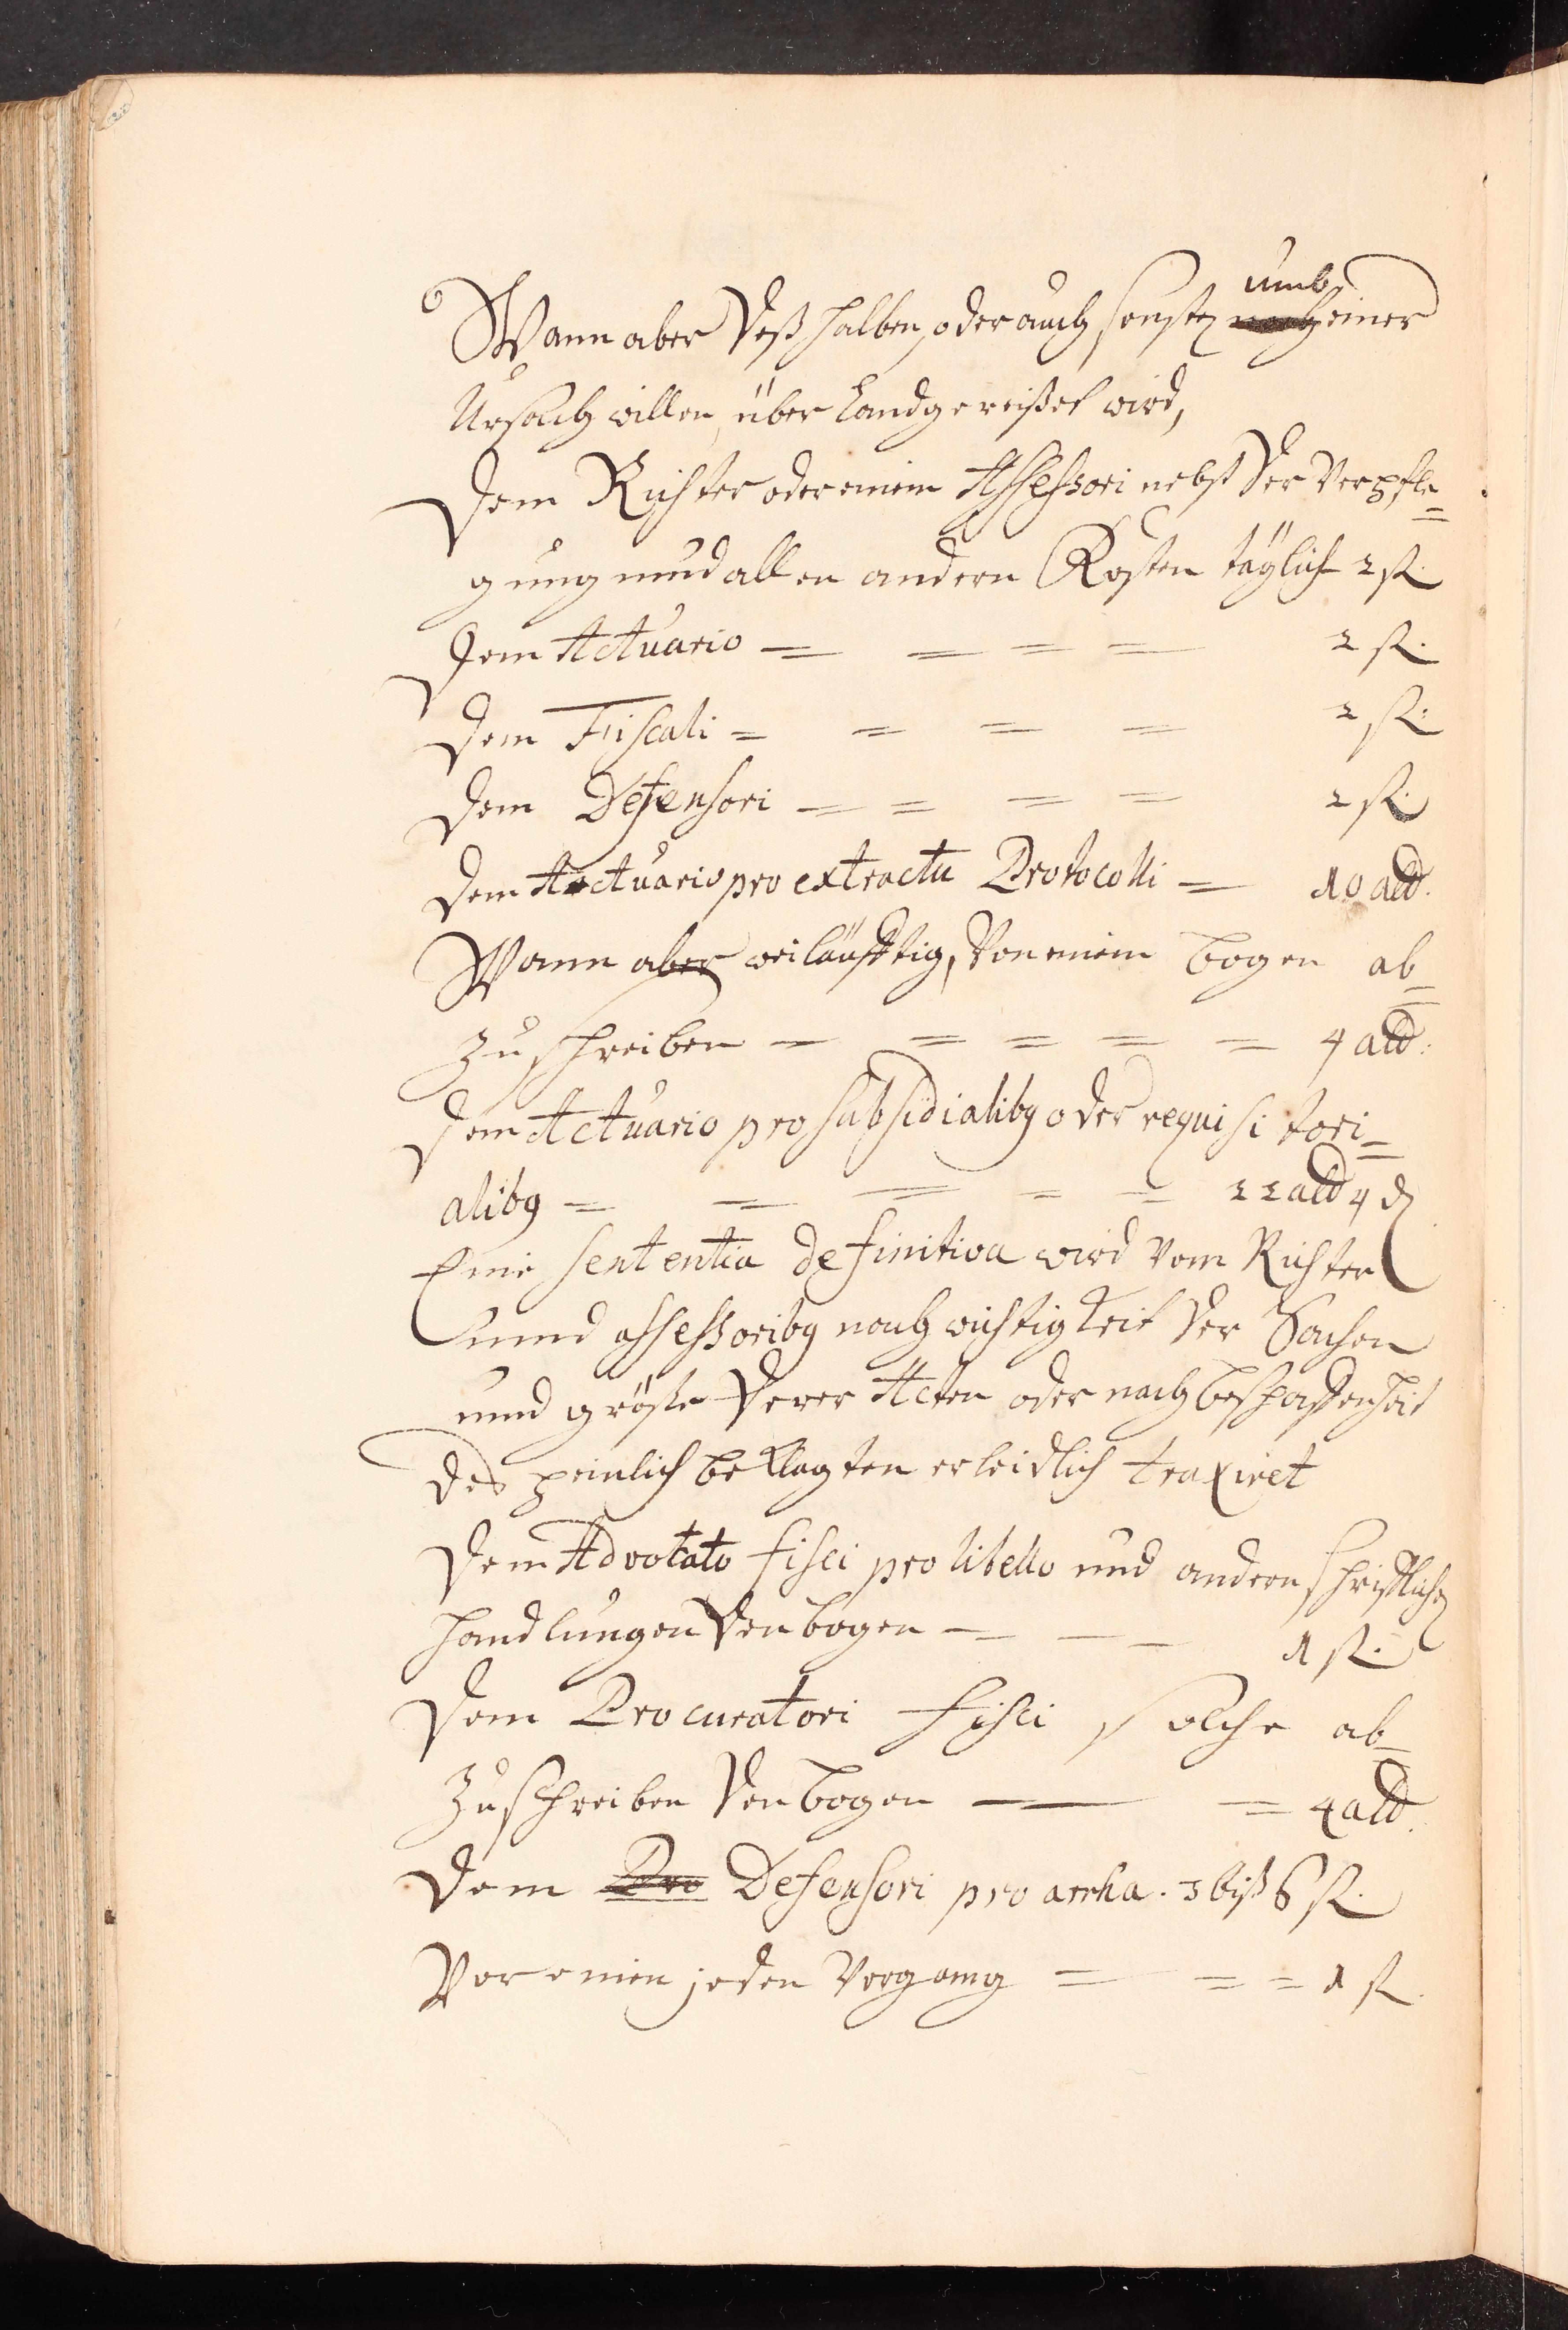 Wann aber deßhalben, oder auch sonsten umb einer
Ursach willen, über Land gereißet wird,
Dem Richter oder einem Assessori nebst der Verpfle=
gung und allen andern Kosten täglich 2 fl.
Dem Actuario = = = = 2 fl.
Dem Fiscali = = = = 2 fl.
Dem Defensori = = = = 2 fl.
Dem Actuario pro extractu Protocolli = 10 alb.
Wann aber weiläufftig, Von einem bogen ab=
zuschreiben = = = = = 4 alb.
Dem Actuario pro subsidialibus oder requisitori=
alibus = = = = = 22 alb 4 d
Eine sententia definitiva wird vom Richter
unnd assessoribus nach wichtigkeit der Sachen
unnd größe derer Acten oder nach beschaffenheit
des peinlich beklagten erleidlich traxiret
Dem Advocato fisci pro libello und andern schrifftlichen
handlungen den bogen = = = 1 fl.
Dem Procuratori fisci solche ab=
zuschreiben den bogen = = 4 alb.
Dem Pro Defensori pro arrha. 3 biß 6 fl.
Vor einen jeden Vorgang = = = 1 fl.